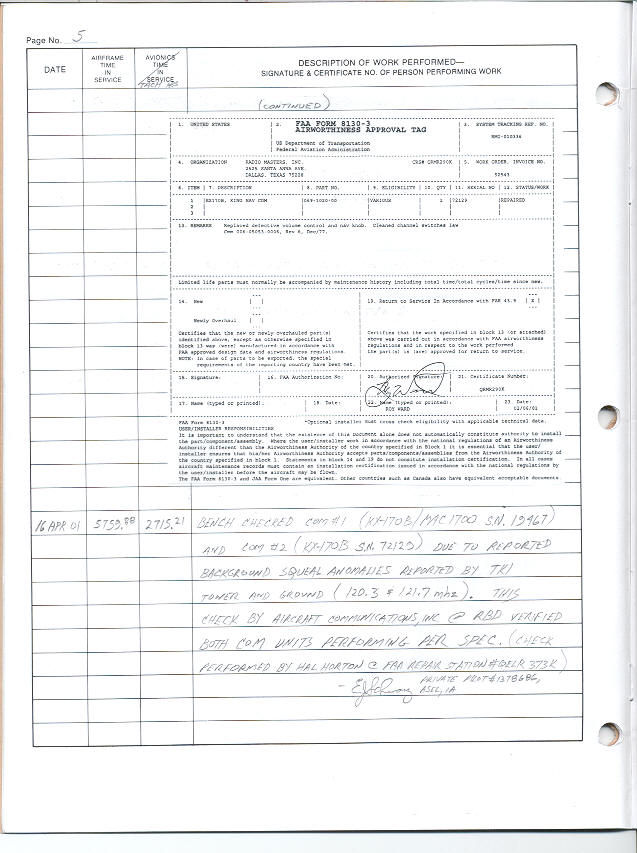 Page No. 5
DATE
AIRFRAME TIME IN SERVICE
AVIONICS TIME IN SERVICE
TACH HRS
DESCRIPTION OF WORK PERFORMED—
SIGNATURE & CERTIFICATE NO. OF PERSON PERFORMING WORK
(CONTINUED)
1. UNITED STATES
2. FAA FORM 8130-3
AIRWORTHINESS APPROVAL TAG
US Department of Transportation
Federal Aviation Administration
3. SYSTEM TRACKING REF. NO.
RMI-010336
4. ORGANIZATION RADIO MASTERS, INC. CRS# QRMR290K
2525 SANTA ANNA AVE.
DALLAS, TEXAS 75228
5. WORK ORDER, INVOICE NO.
50543
6. ITEM | 7. DESCRIPTION | 8. PART NO. | 9. ELIGIBILITY | 10. QTY | 11. SERIAL NO | 12. STATUS/WORK
1 |KX170B, KING NAV COM |069-1020-00 |VARIOUS | 1 |72129 |REPAIRED
2
3
13. REMARKS Replaced defective volume control and nav knob. Cleaned channel switches iaw
Cmm 006-05053-0006, Rev 6, Dec/77.
Limited life parts must normally be accompanied by maintenance history including total time/total cycles/time since new.
14. New | |
Newly Overhaul | |
19. Return to Service In Accordance with FAR 43.9 | X |
Certifies that the new or newly overhauled part(s)
identified above, except as otherwise specified in
block 13 was (were) manufactured in accordance with
FAA approved design data and airworthiness regulations.
NOTE: In case of parts to be exported, the special
requirements of the reporting country have been met.
Certifies that the work specified in block 13 (or attached)
above was carried out in accordance with FAR airworthiness
regulations and in respect to the work performed
the part(s) is (are) approved for return to service.
15. Signature:
16. FAA Authorization No.
20. Authorized Signature:
21. Certificate Number:
QRMR290K
17. Name (typed or printed):
18 Date:
22. Name (typed or printed):
ROY WARD
23 Date:
02/06/01
FAA Form 8130-3 *Optional installer must cross check eligibility with applicable technical data.
USER/INSTALLER RESPONSIBILITIES
It is important to understand that the existence of this Document alone does not automatically constitute authority to install
the part/component/assembly. Where the user/installer work in accordance with the national regulations of an Airworthiness
Authority different than the Airworthiness Authority of the country specified in Block 1 it is essential that the user/
installer ensures that his/her Airworthiness Authority accepts parts/components/assemblies from the Airworthiness Authority of
the country specified in block 1. Statements in block 14 and 19 do not constitute installation certification. In all cases
aircraft maintenance records must contain an installation certification issued in accordance with the national regulations by
the user/installer before the aircraft may be flown.
The FAA Form 8130-3 and JAA Form One are equivalent. Other countries such as Canada also have equivalent acceptable documents
16 APR 01 5759.88 2715.21 BENCH CHECKED COM #1 (KX-170B/MAC 1700 S.N. 19467)
AND COM #2 (KX-170B S.N. 72129) DUE TO REPORTED
BACKGROUND SQUEAL ANOMALIES REPORTED BY TKI
TOWER AND GROUND (120.3 & 121.7 mhz). THIS
CHECK BY AIRCRAFT COMMUNICATIONS, INC @ RBD VERIFIED
BOTH COM UNITS PERFORMING PER SPEC. (CHECK
PERFORMED BY HAL HORTON @ FAA REPAIR STATION #QELR 373K)
PRIVATE PILOT #1378686,
ASEL, IA